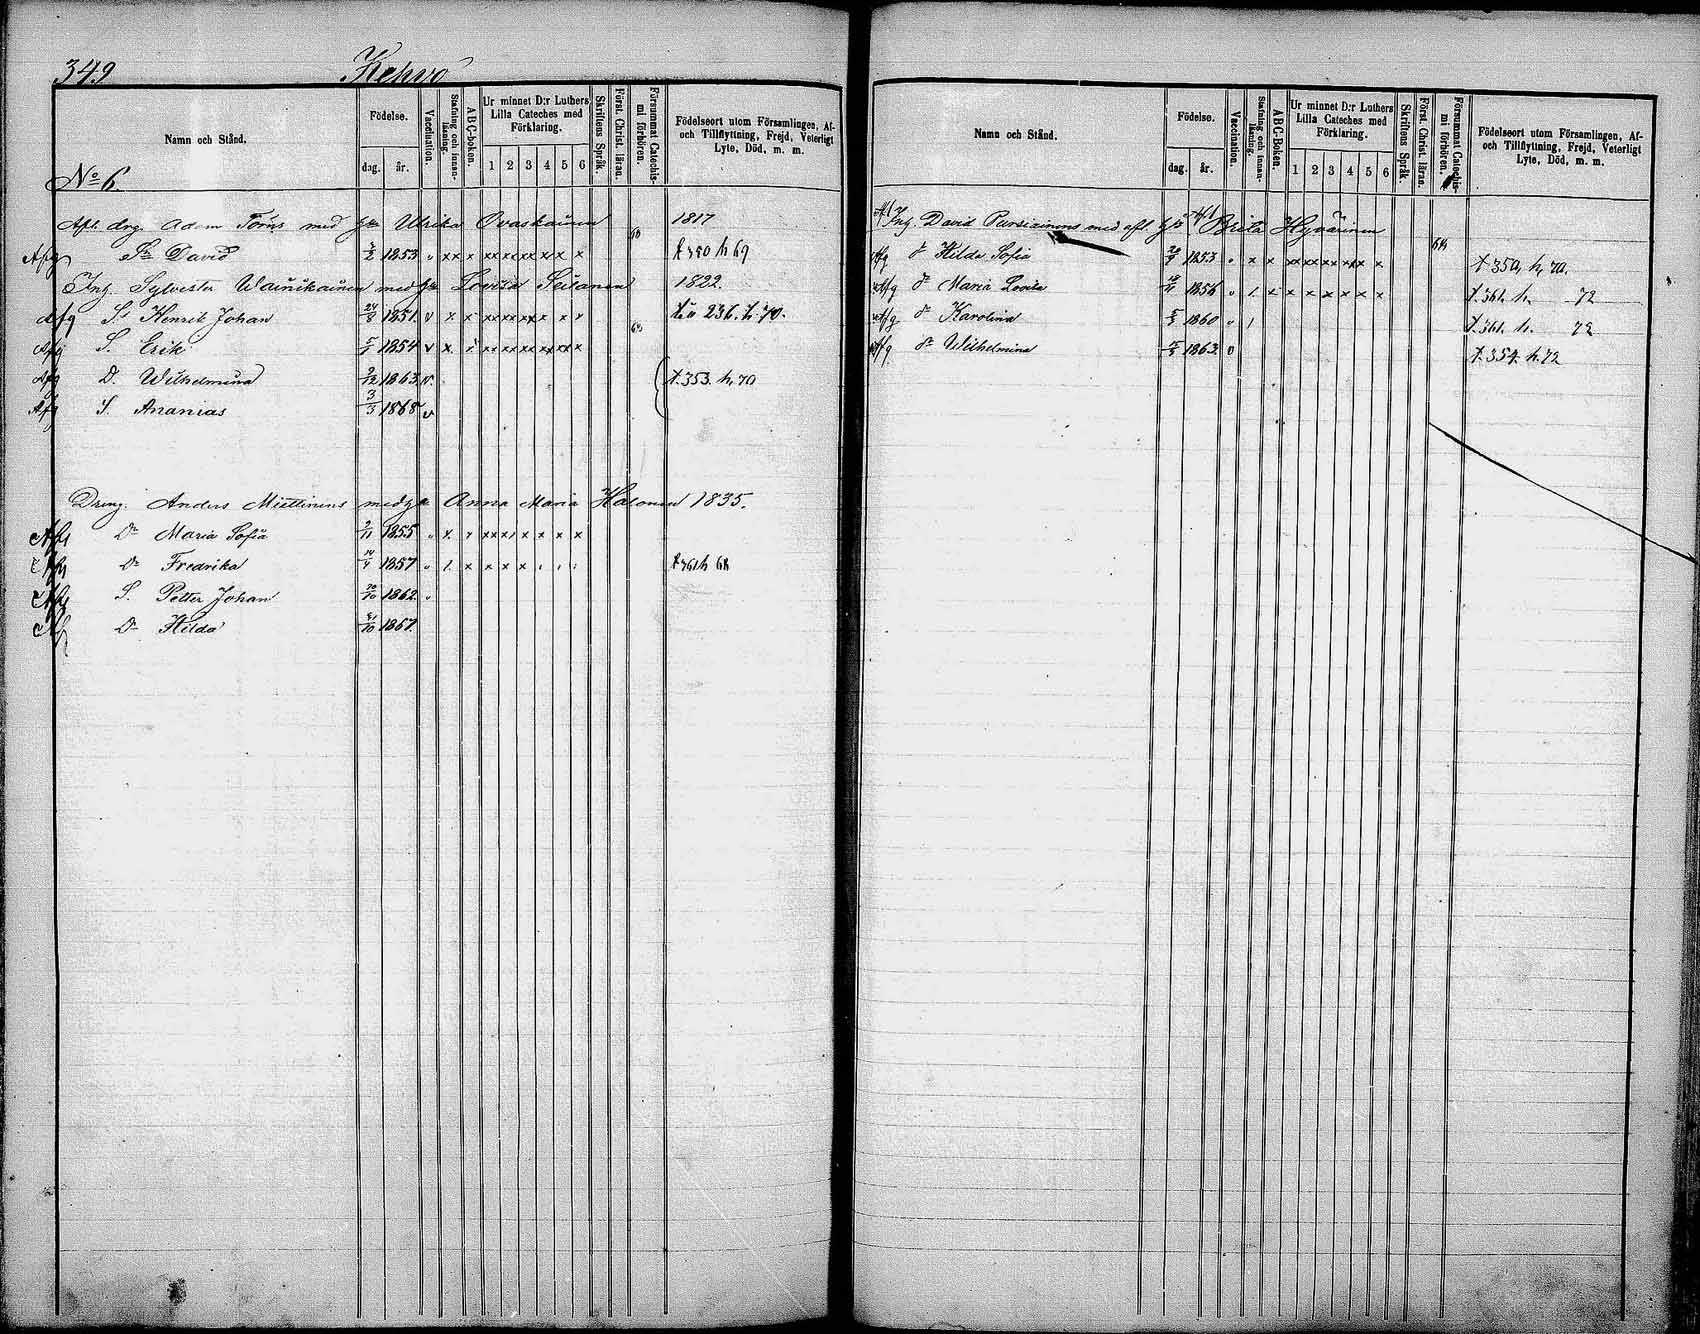 349 Kehvo
Namn och Stånd.
Födelse.
dag. år.
Vaccination.
Stafning och innanläsning.
ABC-boken.
Ur minnet D:r Luthers Lilla Cateches med Förklaring.
1 2 3 4 5 6
Skriftens Språk.
Först. Christ. läran.
Försummat Catechismi förhören.
Födelseort utom Församlingen, Af- och Tillflyttning, Frejd, Veterligt Lyte, Död, m. m.
No 6
Afl. drg. Adam Törns med Ulrika Ovaskainen 1817
Afg Sn David 3/2 1853 " xx x xxxxxx xx x 350 h 69
Ing. Sylvester Wainikainen med Lovisa Seilanen 1822.
Afg S. Henrik Johan 24/8 1851 v x x xxxxx x x 236. h. 70.
Afg S. Erik 1854 v x x xxxxxxxx
Afg D. Wilhelmina 2/12 1863 v. 353. h. 70
Afg S. Ananias 3/3 1868 v
Dreng. Anders Miettinens med Anna Maria Halonen 1835.
Afg Dr Maria Sofia 2/11 1855 " x. x xxx x x x x
Afg Dr Fredrika 1857 " 1. x x x x 361 h 68
Afg S. Petter Johan 20/10 1862 "
Afg Dr Hilda 1867
Namn och Stånd.
Födelse.
dag. år.
Vaccination.
Stafning och innanläsning.
ABC-Boken.
Ur minnet D:r Luthers Lilla Cateches med Förklaring.
1 2 3 4 5 6
Skriftens Språk.
Först. Christ. läran.
Försummat Catechismi förhören.
Födelseort utom Församlingen, Af- och Tillflyttning, Frejd, Veterligt Lyte, Död, m. m.
Ing. David Pursiainens med afl. Brita Hyvärinen
Afg dr Hilda Sofia 1853 " x x xxxxxxx x t. 350, h, 70.
Afg dr Maria Lovisa 1856 " 1. x x x x x x x t. 361. h. 72
Afg dr Karolina 1860 " 1 t. 361. h. 72
Afg dr Wilhelmina 1863. v t. 354. h. 72